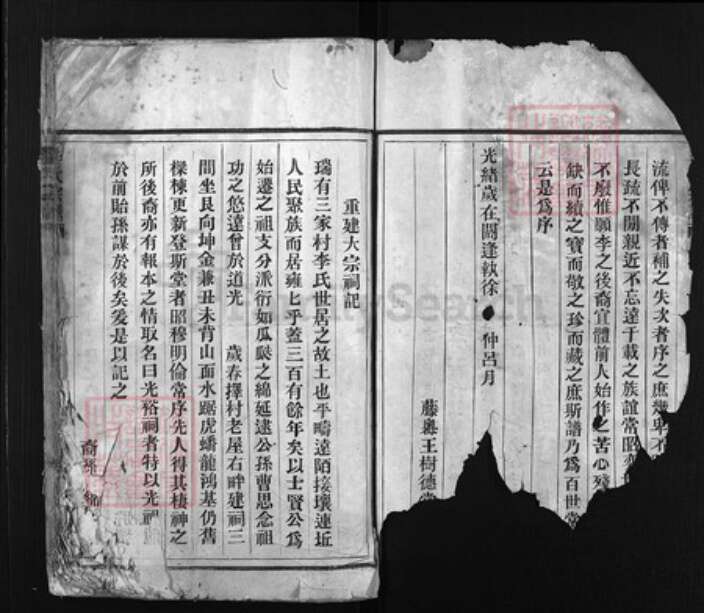 流俾不傳者補之失次者序之庶幾卑不
長疏不閒親近不忘遠千載之族誼常昭
不廢惟願李之後裔宜體前人始作之苦心殘
缺而續之寶而敬之珍而藏之庶斯譜乃為百世常
云是為序
光緒歲在閼逢執徐 仲呂月
藤奧王樹德堂
重建大宗祠記
瑞有三家村李氏世居之故土也平疇遠陌接壤連坵
人民聚族而居雍七乎蓋三百有餘年矣以士賢公為
始遷之祖支分派衍如瓜瓞之綿延逮公孫曹思念祖
功之悠遠曾於道光 歲春擇村老屋右畔建祠三
間坐艮向坤金兼丑未背山面水踞虎蟠龍鴻基仍舊
樑棟更新登斯堂者昭穆明倫常序先人得其棲神之
所後裔亦有報本之情取名曰光裕祠者特以光
於前貽孫謀於後矣爰是以記之
裔孫
FamilySearch